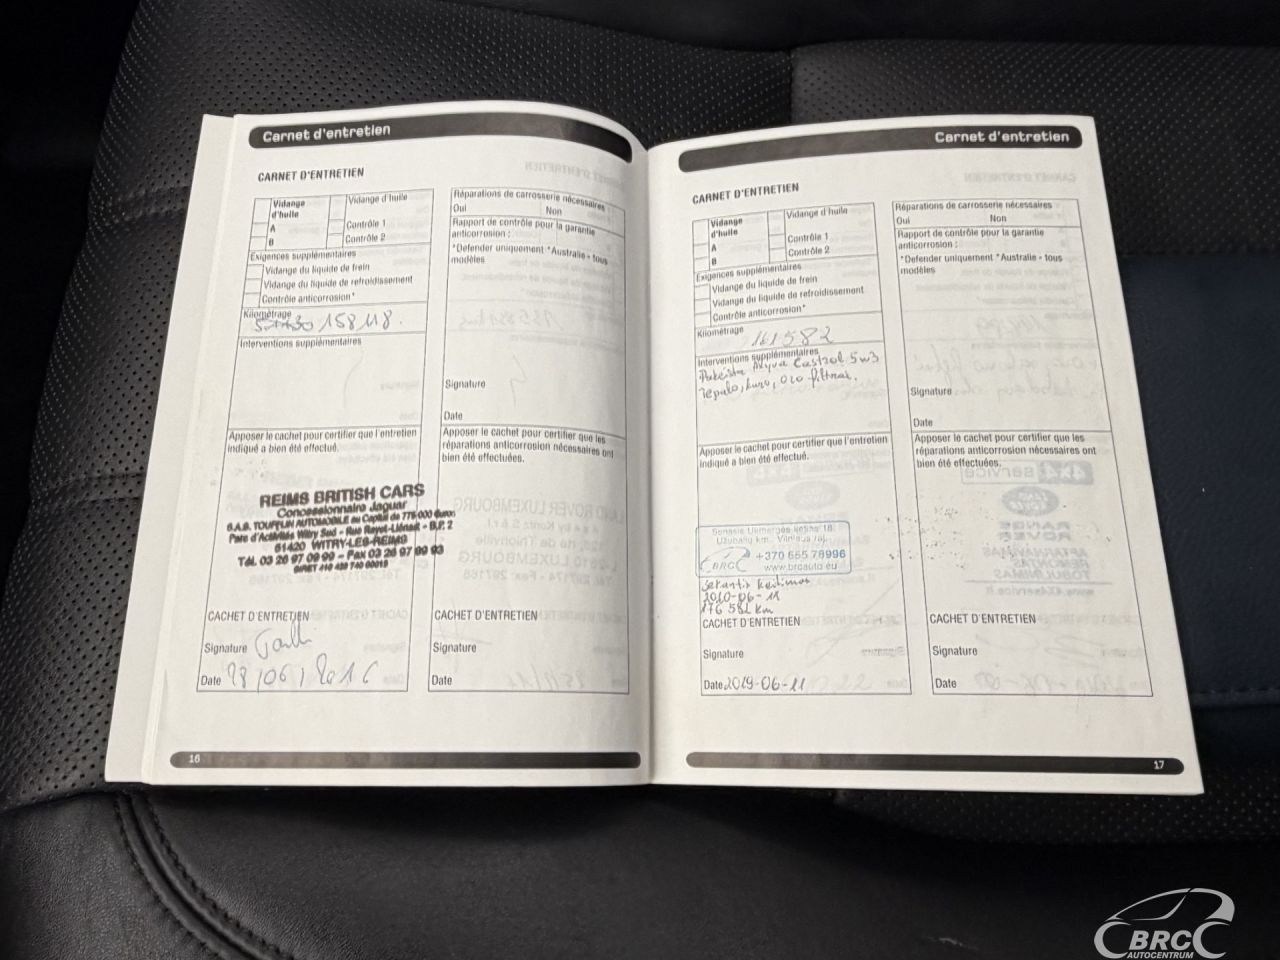 Carnet d'entretien
CARNET D'ENTRETIEN
Vidange d'huile
Vidange d'huile
A
Contrôle 1
B
Contrôle 2
Exigences supplémentaires
Vidange du liquide de frein
Vidange du liquide de refroidissement
Contrôle anticorrosion*
Kilométrage
158118.
Interventions supplémentaires
Apposer le cachet pour certifier que l'entretien
indiqué a bien été effectué.
REIMS BRITISH CARS
Concessionnaire Jaguar
S.A.S. TOURPLIN AUTOMOBILE au Capital de 775 000 Euros
Parc d'Activités Witry Sud - Rue Rayet-Liénart - B.P. 2
51420 WITRY-LES-REIMS
Tél. 03 26 97 09 99 - Fax 03 26 97 99 93
CACHET D'ENTRETIEN
Signature
Date 28/06/2016
Réparations de carrosserie nécessaires
Oui Non
Rapport de contrôle pour la garantie
anticorrosion :
*Defender uniquement *Australie - tous
modèles
Signature
Date
Apposer le cachet pour certifier que les
réparations anticorrosion nécessaires ont
bien été effectuées.
CACHET D'ENTRETIEN
Signature
Date
16
Carnet d'entretien
CARNET D'ENTRETIEN
Vidange d'huile
Vidange d'huile
A
Contrôle 1
B
Contrôle 2
Exigences supplémentaires
Vidange du liquide de frein
Vidange du liquide de refroidissement
Contrôle anticorrosion*
Kilométrage
161582
Interventions supplémentaires
Pakeista Alyva Castrol 5w3
Tepalo, kuro, oro filtrai.
Apposer le cachet pour certifier que l'entretien
indiqué a bien été effectué.
Senasis Ukmergės kelias 18,
Užubalių km., Vilniaus raj.
BRC +370 665 78996
www.brcauto.eu
sekantis keitimas
2020-06-11
176 582 km
CACHET D'ENTRETIEN
Signature
Date 2019-06-11
Réparations de carrosserie nécessaires
Oui Non
Rapport de contrôle pour la garantie
anticorrosion :
*Defender uniquement *Australie - tous
modèles
Signature
Date
Apposer le cachet pour certifier que les
réparations anticorrosion nécessaires ont
bien été effectuées.
CACHET D'ENTRETIEN
Signature
Date
17
BRC
AUTOCENTRUM